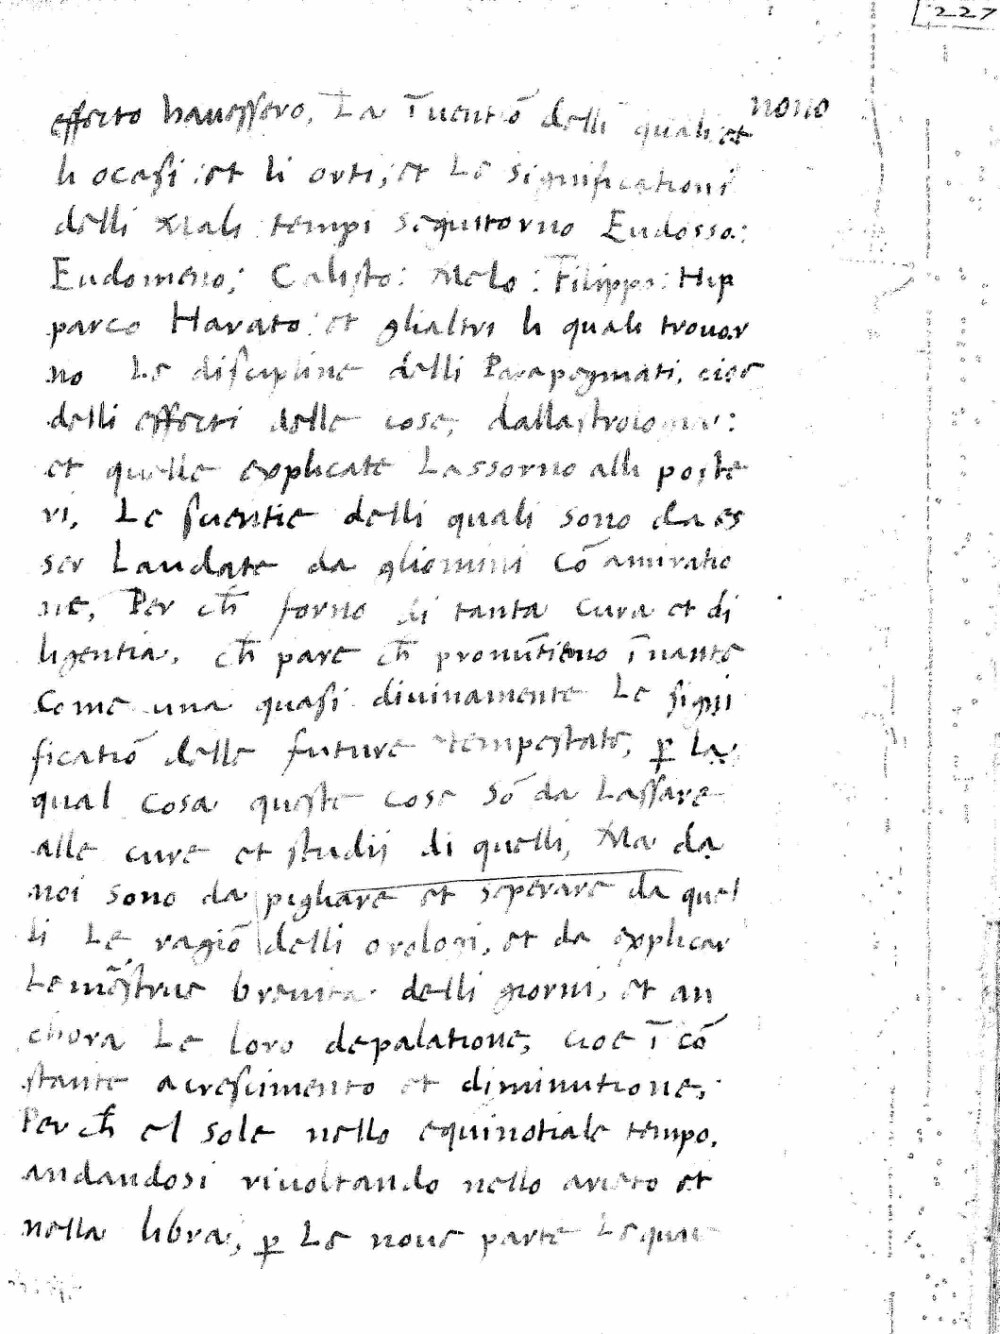 227
nono
effecto havessero, La īventiō delli quali et
li ocasi : et li orti ; et Le significationi
delli tali tempi seguitorno Eudosso :
Eudomeno ; Calisto : Melo : Filippo : Hip
parco Harato : et glialtri li quali trovor
no Le discipline delli Parapegmati, cioe
delli effecti delle cose, dallastrologia :
et quelle explicate Lassorno alli poste
ri, Le scientie delli quali sono da es
ser Laudate da gliomini cō amiratio
ne, Per ch̄ forno di tanta cura et di
ligentia, ch̄ pare ch̄ pronūtieno īnante
Come una quasi divinamente Le signi
ficatiō delle future tempestate, ꝑ La
qual cosa queste cose sō da Lassare
alle cure et studij di quelli, Ma da
noi sono da pigliare et seperare da quel
li Le ragiō delli orologi, et da explicar
Le mēstrue brevita delli giorni, et an
chora Le loro depalatione, cioe ī cō
stante acrescimento et diminutione,
Per ch̄ el sole nello equinotiale tempo,
andandosi rivoltando nello arieto et
nella libra, ꝑ Le nove parte Lequale